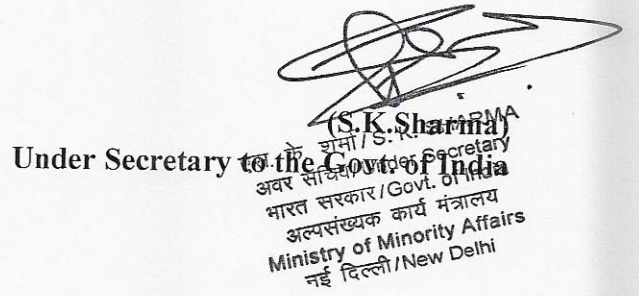 (S.K.Sharma)
Under Secretary to the Govt. of India
एस. के. शर्मा / S. K. SHARMA
अवर सचिव/Under Secretary
भारत सरकार/Govt. of India
अल्पसंख्यक कार्य मंत्रालय
Ministry of Minority Affairs
नई दिल्ली/New Delhi